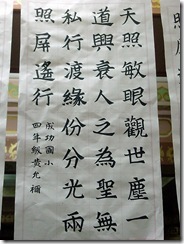 天照敏眼觀世塵一
道興衰人之為聖無
私行渡緣份分光兩
照屏遙行
成功國小
四年級黃允禰